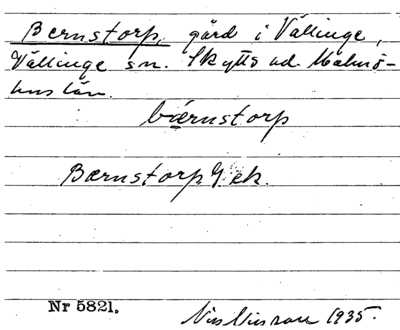 Bernstorp, gård i Vällinge,
Vällinge sn. Skytts hd. Malmö-
hus län.
bærnstorp
Bærnstorp G ek.
Nr 5821.
1935.